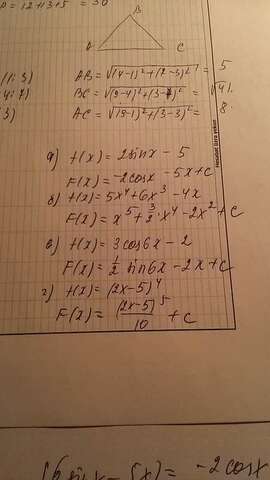 P = 12+13+5 = 30
B
A C
(1; 3) AB = √(4-1)²+(7-3)² = 5
(4; 7) BC = √(9-4)²+(3-7)² = √41.
3) AC = √(9-1)²+(3-3)² = 8
а) f(x) = 2sinx - 5
F(x) = -2cosx - 5x + c
б) f(x) = 5x⁴ + 6x³ - 4x
F(x) = x⁵ + 3/2 · x⁴ - 2x² + c
в) f(x) = 3cos6x - 2
F(x) = 1/2 sin6x - 2x + c
г) f(x) = (2x-5)⁴
F(x) = (2x-5)⁵/10 + c
sinx - 5x) = -2cosx